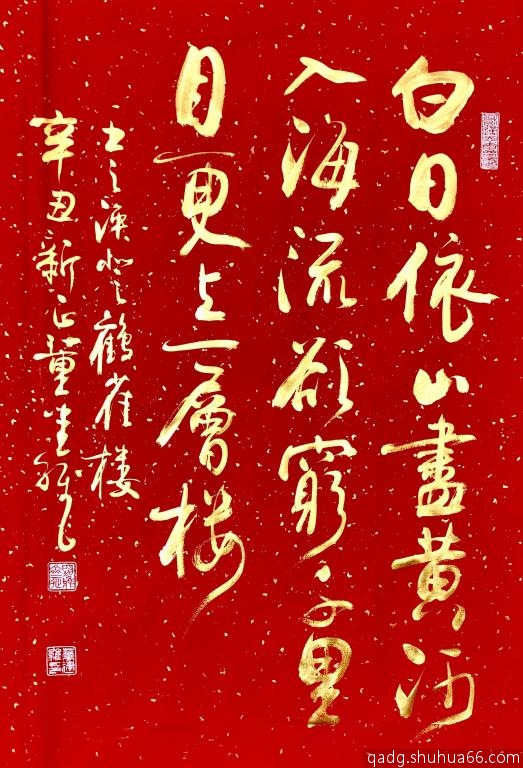 白日依山盡黄河
入海流欲窮千里
目更上一層楼
王之渙登鶴雀楼
辛丑新正董建雄书
qadg.shuhua66.com